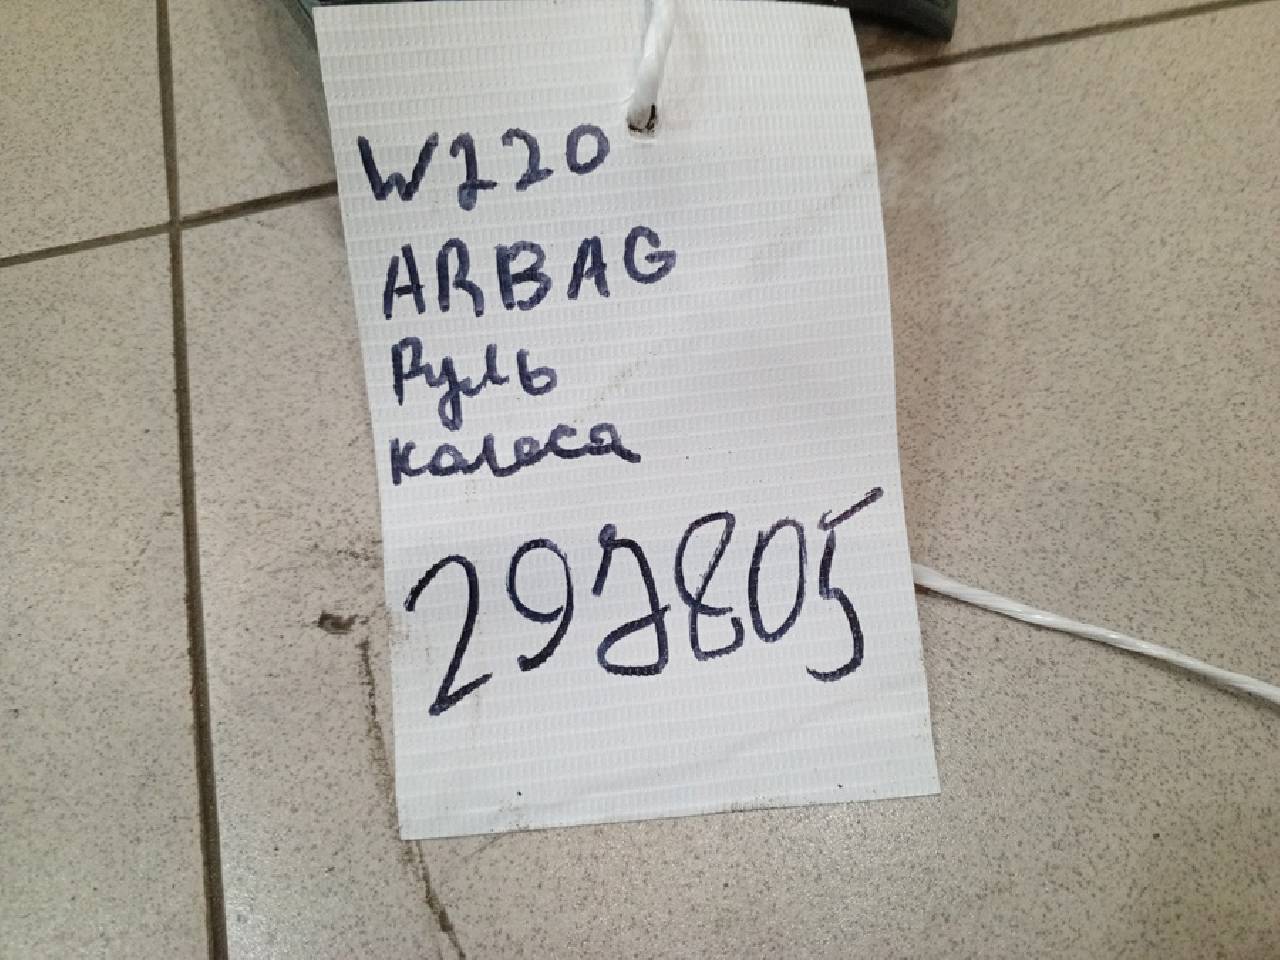 W220
ARBAG
Руль
колеса
297805